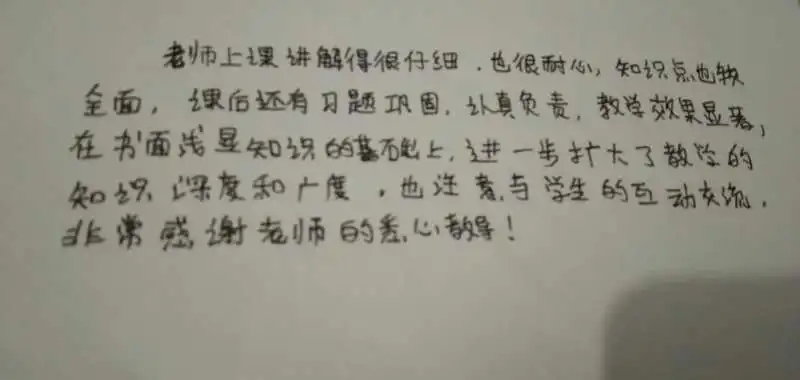 老师上课讲解得很仔细,也很耐心,知识点也较
全面,课后还有习题巩固,认真负责,教学效果显著,
在书面浅显知识的基础上,进一步扩大了教学的
知识深度和广度,也注意与学生的互动交流,
非常感谢老师的悉心教导!